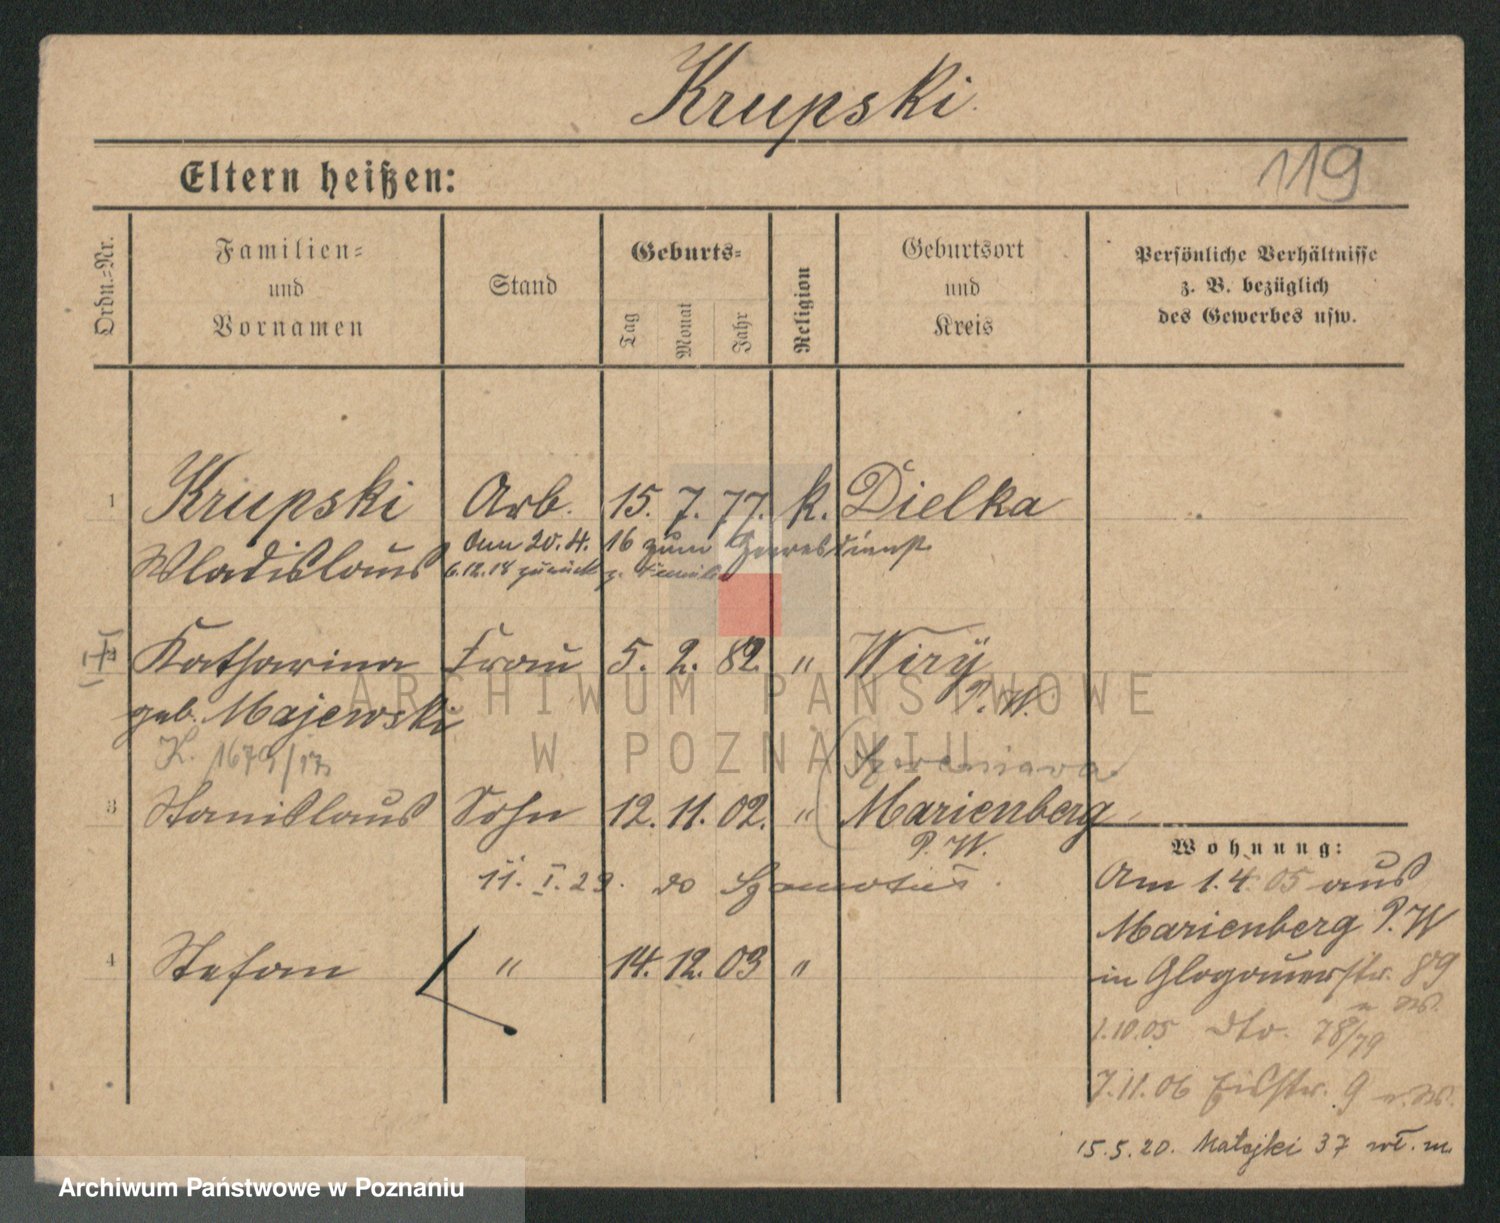 Krupski
119
Eltern heißen:
Ordn.-Nr.
Familien- und Vornamen
Stand
Geburts-
Tag
Monat
Jahr
Religion
Geburtsort und Kreis
Persönliche Verhältnisse
z. B. bezüglich
des Gewerbes usw.
1 Krupski Arb. 15. 7. 77. k. Dielka
Wladislaus Am 20.4.16 zum Heeresdienst
6.12.18 zurück z. Familie
Katharina Frau 5. 2. 82. " Wiry
P. W.
geb. Majewski
K. 1679/17
3 Stanislaus Sohn 12. 11. 02. " Marienberg
P. W.
11. I. 29. do Szamotuł.
4 Stefan " 14. 12. 03 "
Wohnung:
Am 1.4.05 aus
Marienberg P. W
in Glogauerstr. 89
1.10.05 dto. 78/79
7.11.06 9
15.5.20. Matejki 37 wł. m.
ARCHIWUM PAŃSTWOWE
W POZNANIU
Archiwum Państwowe w Poznaniu